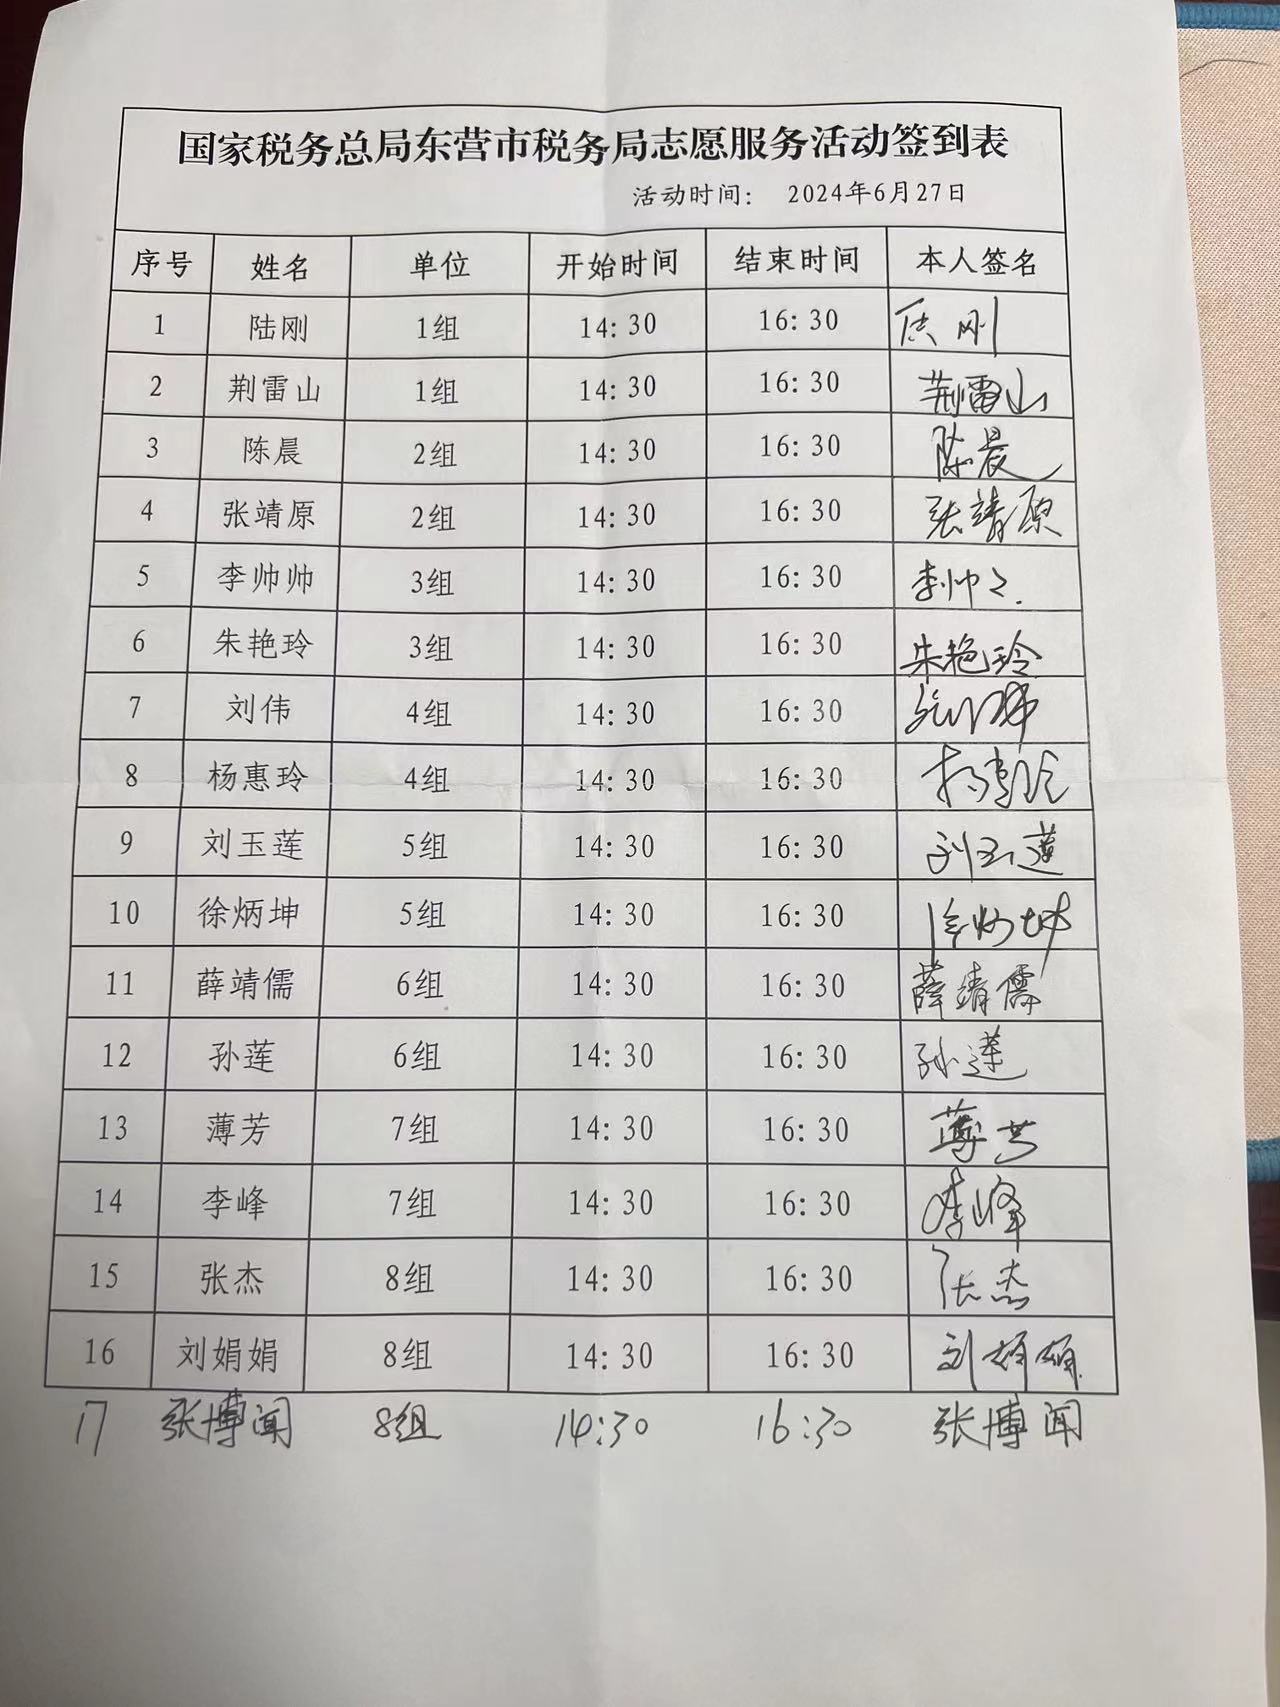 国家税务总局东营市税务局志愿服务活动签到表
活动时间： 2024年6月27日
序号 姓名 单位 开始时间 结束时间 本人签名
1 陆刚 1组 14:30 16:30 陆刚
2 荆雷山 1组 14:30 16:30 荆雷山
3 陈晨 2组 14:30 16:30 陈晨
4 张靖原 2组 14:30 16:30 张靖原
5 李帅帅 3组 14:30 16:30 李帅々.
6 朱艳玲 3组 14:30 16:30 朱艳玲
7 刘伟 4组 14:30 16:30
8 杨惠玲 4组 14:30 16:30 杨惠玲
9 刘玉莲 5组 14:30 16:30 刘玉莲
10 徐炳坤 5组 14:30 16:30 徐炳坤
11 薛靖儒 6组 14:30 16:30 薛靖儒
12 孙莲 6组 14:30 16:30 孙莲
13 薄芳 7组 14:30 16:30 薄芳
14 李峰 7组 14:30 16:30 李峰
15 张杰 8组 14:30 16:30 张杰
16 刘娟娟 8组 14:30 16:30 刘娟娟
17 张博闻 8组 14:30 16:30 张博闻